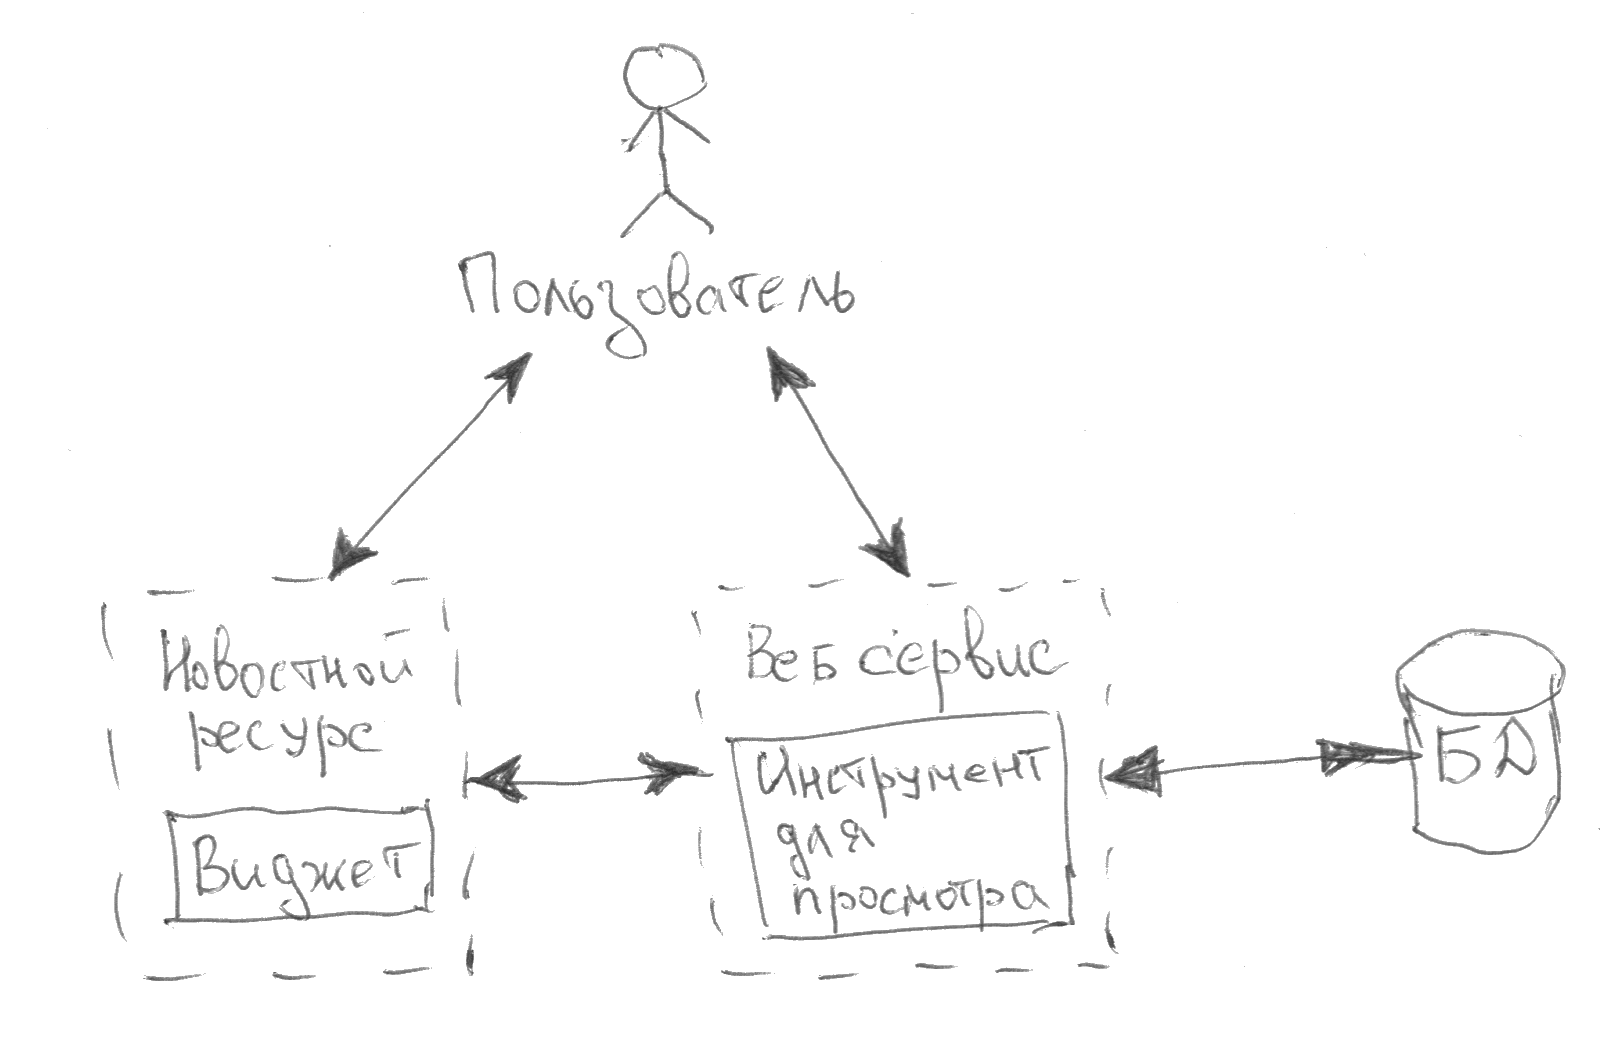 Пользователь
Новостной
ресурс
Виджет
Веб сервис
Инструмент
для
просмотра
БД